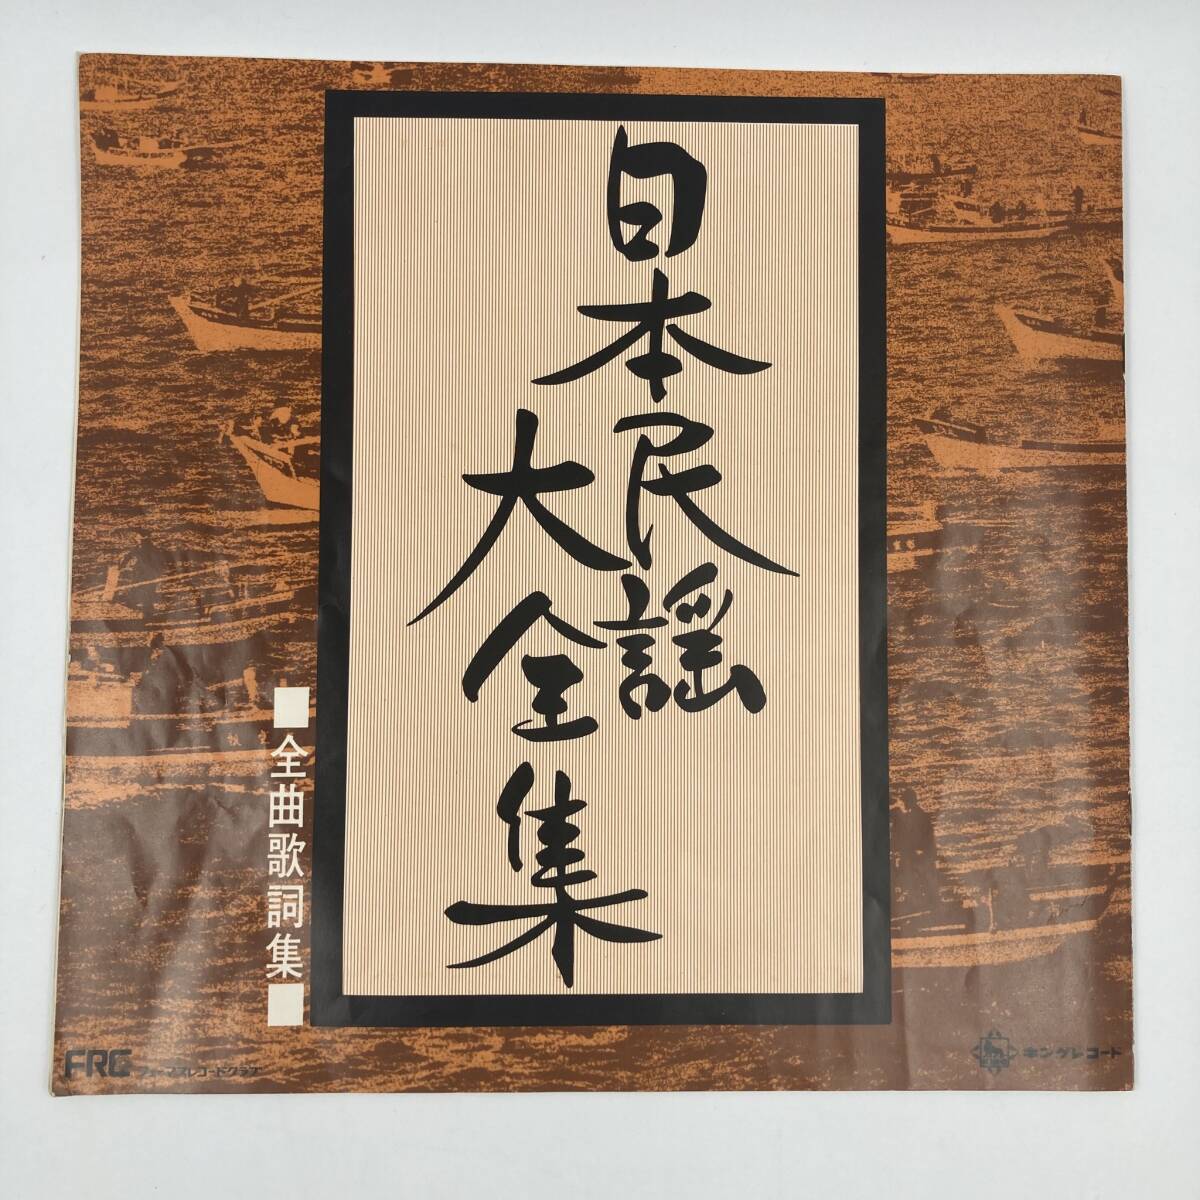 日本民謡
大全集
■全曲歌詞集■
FRC フォーマスレコードクラブ
キングレコード